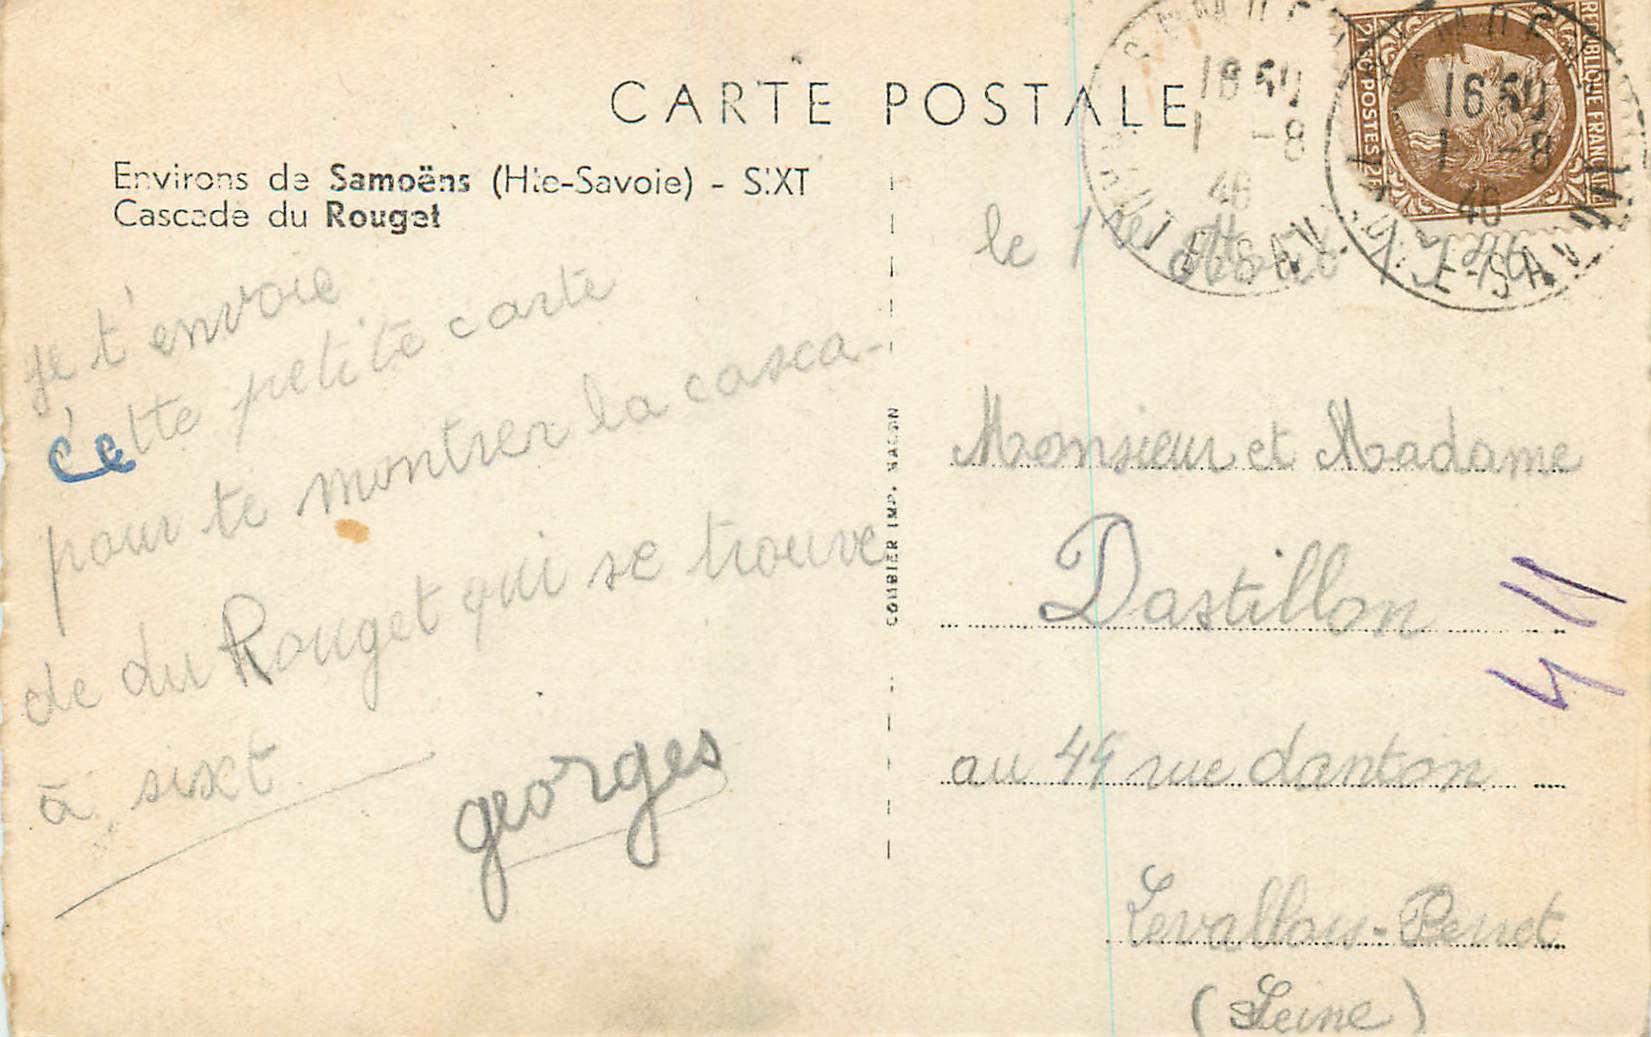 CARTE POSTALE
Environs de Samoëns (Hte-Savoie) - SIXT
Cascade du Rouget
je t'envoie
cette petite carte
pour te montrer la casca-
de du Rouget qui se trouve
à sixt
georges
COMBIER IMP. MACON
REPUBLIQUE FRANÇAISE
2F POSTES 2F
16 50
1 -8
46
16 50
1 -8
46
le 1er Août
Monsieur et Madame
Dastillon
au 44 rue danton
Levallois-Perret
(Seine)